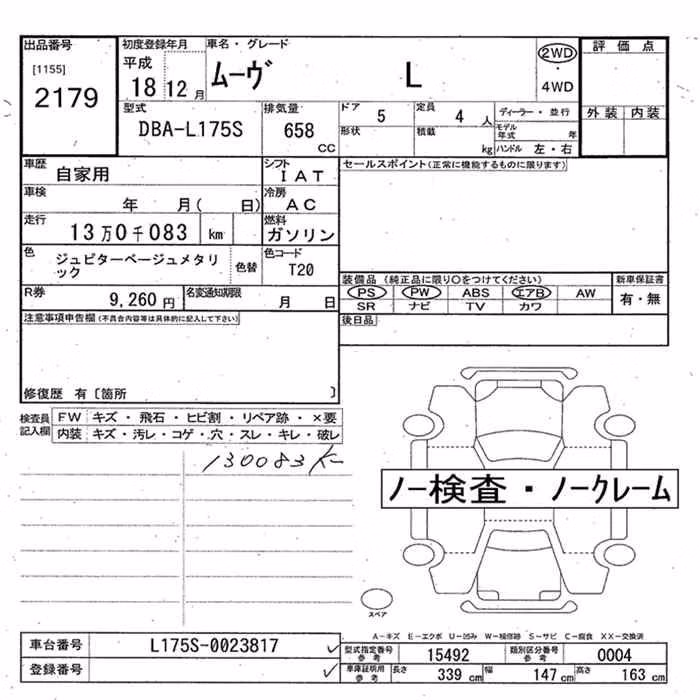 出品番号
[1155]
2179
初度登録年月
平成
18 12 月
車名・グレード
ムーヴ L
2WD
・
4WD
評価点
外装 内装
型式
DBA-L175S
排気量
658 CC
ドア 5
定員 4 人
形状
積載 kg
ディーラー・並行
モデル年式 年
ハンドル 左・右
車歴
自家用
シフト
IAT
セールスポイント(正常に機能するものに限ります)
車検
年 月( 日)
冷房
AC
走行
13万0千083 km
燃料
ガソリン
色
ジュピターベージュメタリ
ック
色替
色コード
T20
装備品 (純正品に限り○をつけてください)
PS PW ABS エアB AW
SR ナビ TV カワ
新車保証書
有・無
R券
9,260 円
名変通知期限
月 日
後日品
注意事項申告欄(不具合内容等は具体的に記入して下さい)
修復歴 有〔箇所 〕
検査員
記入欄
FW キズ・飛石・ヒビ割・リペア跡・×要
内装 キズ・汚レ・コゲ・穴・スレ・キレ・破レ
130083K
ノー検査・ノークレーム
スペア
A-キズ E-エクボ U-凹み W-補修跡 S-サビ C-腐食 XX-交換済
車台番号 L175S-0023817
登録番号
型式指定番号
参考
15492
類別区分番号
参考
0004
車庫証明用
参考
長さ 339 cm 幅 147 cm 高さ 163 cm